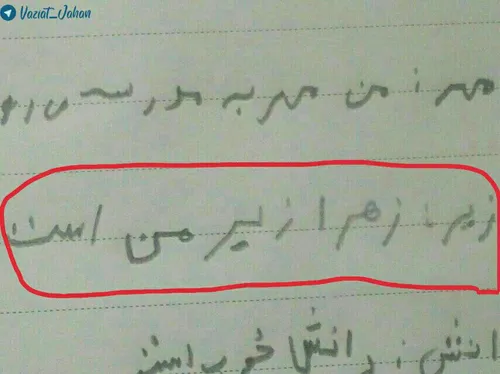 Vaziat_Jahan
مهر: من مهر به مدرسه می رو
زیر: زهرا از زیر من است
انش: دانش خوب است